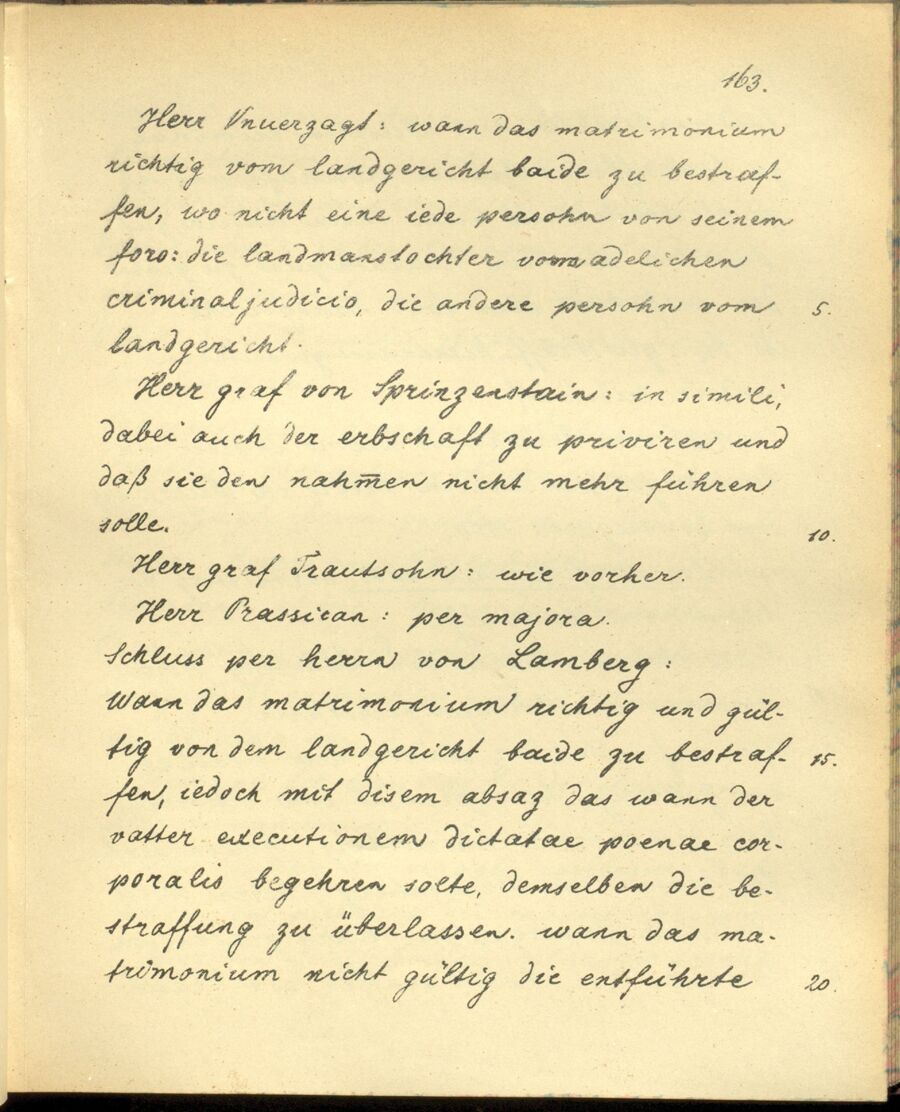 163.
Herr Vnuerzagt: wann das matrimonium
richtig vom landgericht baide zu bestraf-
fen, wo nicht eine iede persohn von seinem
foro: die landmanstochter vom adelichen
criminaljudicio, die andere persohn vom 5.
landgericht.
Herr graf von Sprinzenstain: in simili,
dabei auch der erbschaft zu priviren und
daß sie den nahm̄en nicht mehr führen
solle. 10.
Herr graf Trautsohn: wie vorher.
Herr Prassican: per majora.
Schluss per herrn von Lamberg:
Wann das matrimonium richtig und gül-
tig von dem landgericht baide zu bestraf- 15.
fen, iedoch mit disem absaz das wann der
vatter executionem dictatae poenae cor-
poralis begehren solte, demselben die be-
straffung zu überlassen. wann das ma-
trimonium nicht gültig die entführte 20.